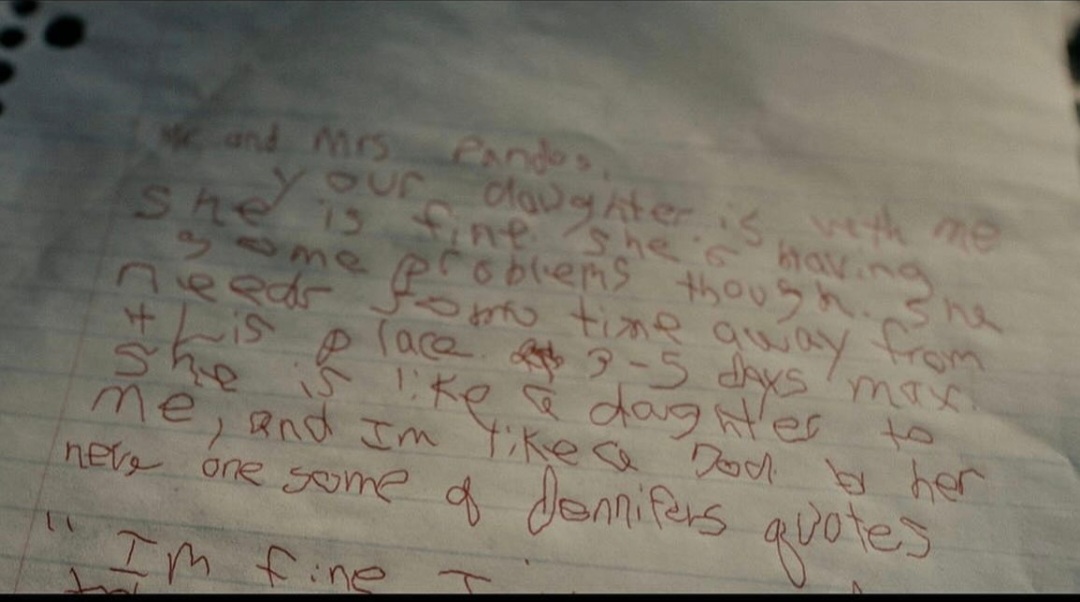 Mr and Mrs Pandos,
your daughter is with me
She is fine. She is having
some problems though. She
needs some time away from
this place. 3-5 days max.
She is like a daghter to
me, and Im like a Dad to her
here one some of Jennifers quotes
" Im fine I